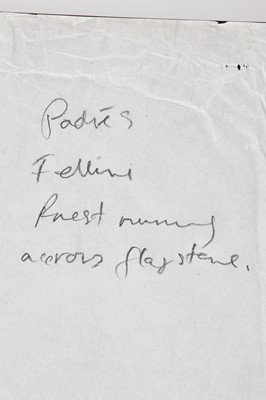 Padrés
Fellini
Priest running
across flagstone.